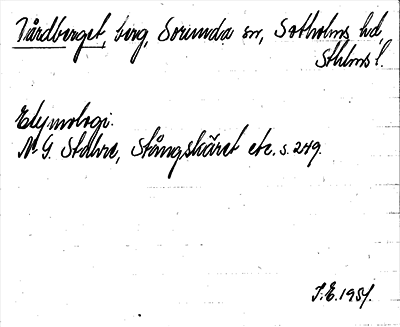 Vårdberget, berg, Sorunda sn, Sotholms hd,
Sthlms l.
Etymologi.
N. G. Stahre, Stångskäret etc. s. 249.
J.E. 1954.